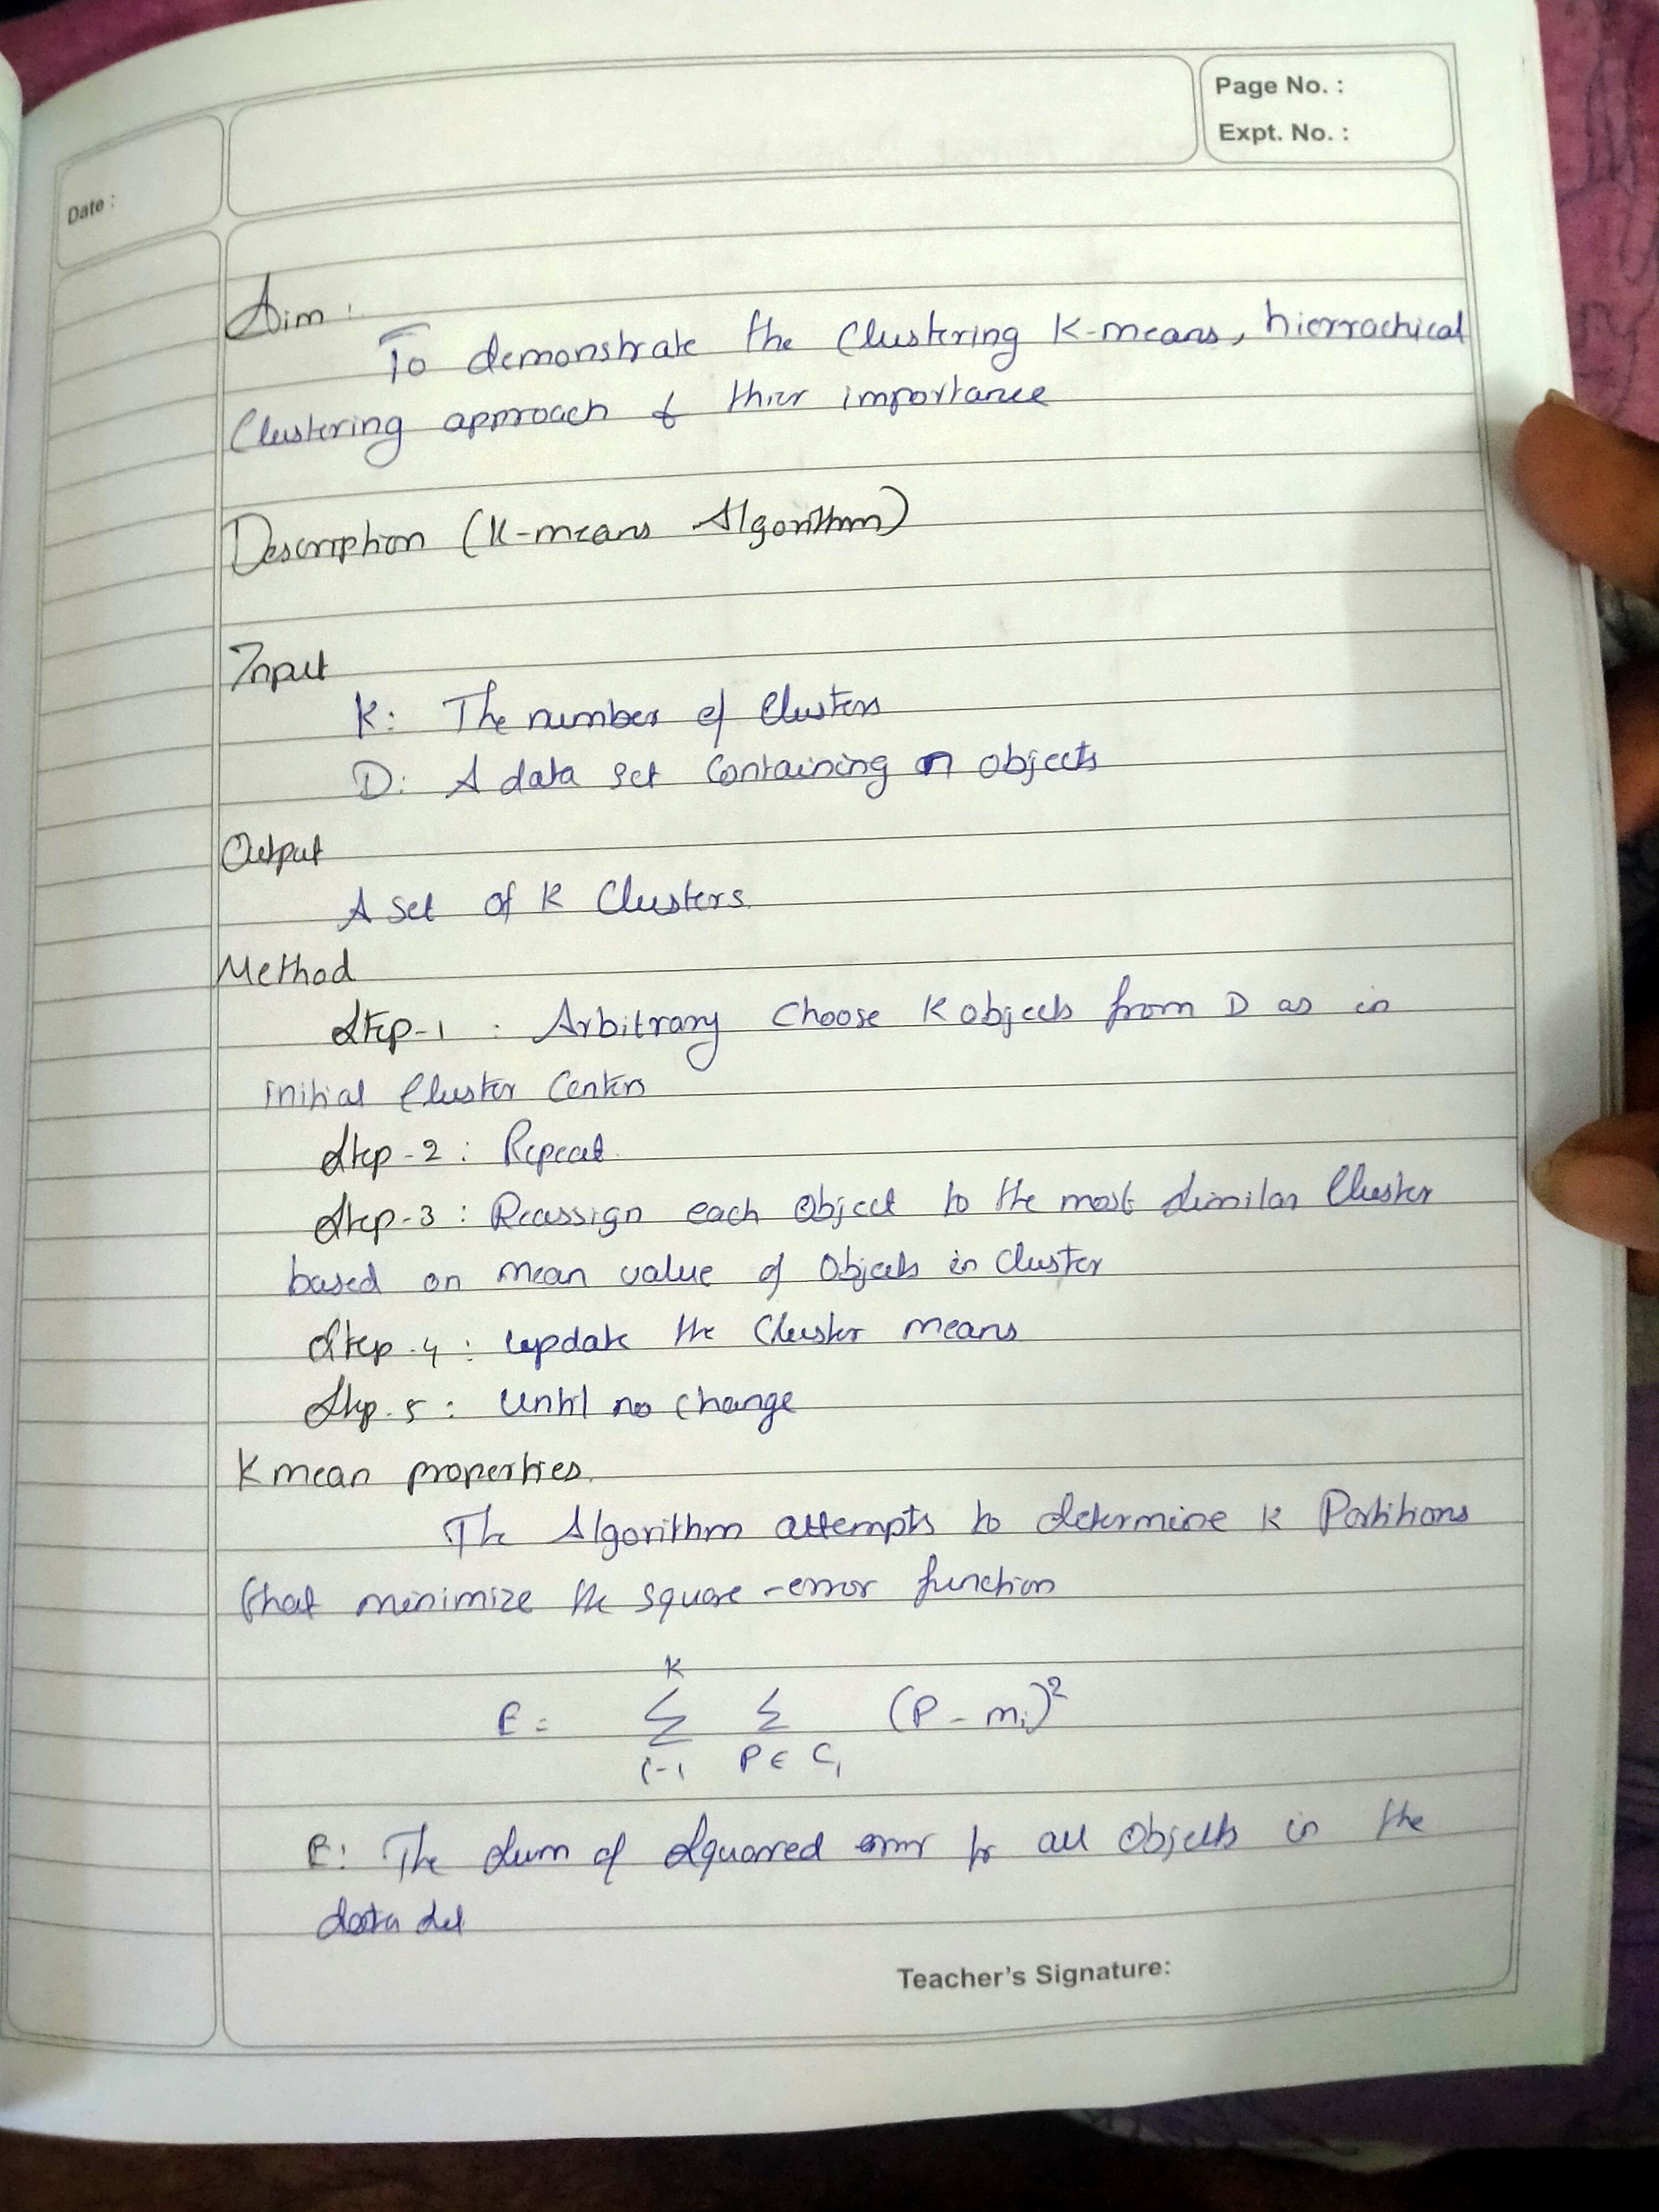 Page No. :
Expt. No. :
Date :
Aim :
To demonstrate the Clustering K-means, hierrachical
Clustering approach & thier importance
Description (K-means Algorithm)
Input
K: The number of Clusters
D: A data set Containing n objects
Output
A set of K Clusters.
Method
Step-1 : Arbitrary Choose K objects from D as in
initial Cluster Centers
Step-2 : Repeat.
Step-3 : Reassign each Object to the most similar Cluster
based on mean value of Objects in Cluster
Step-4 : update the Cluster means
Step-5 : Until no change
K mean properties.
The Algorithm attempts to determine K Partitions
that minimize the square-error function
K
E = Σ Σ (P - mi)²
i-1 P ∈ Ci
E: The sum of squared error for all Objects in the
data set
Teacher's Signature: